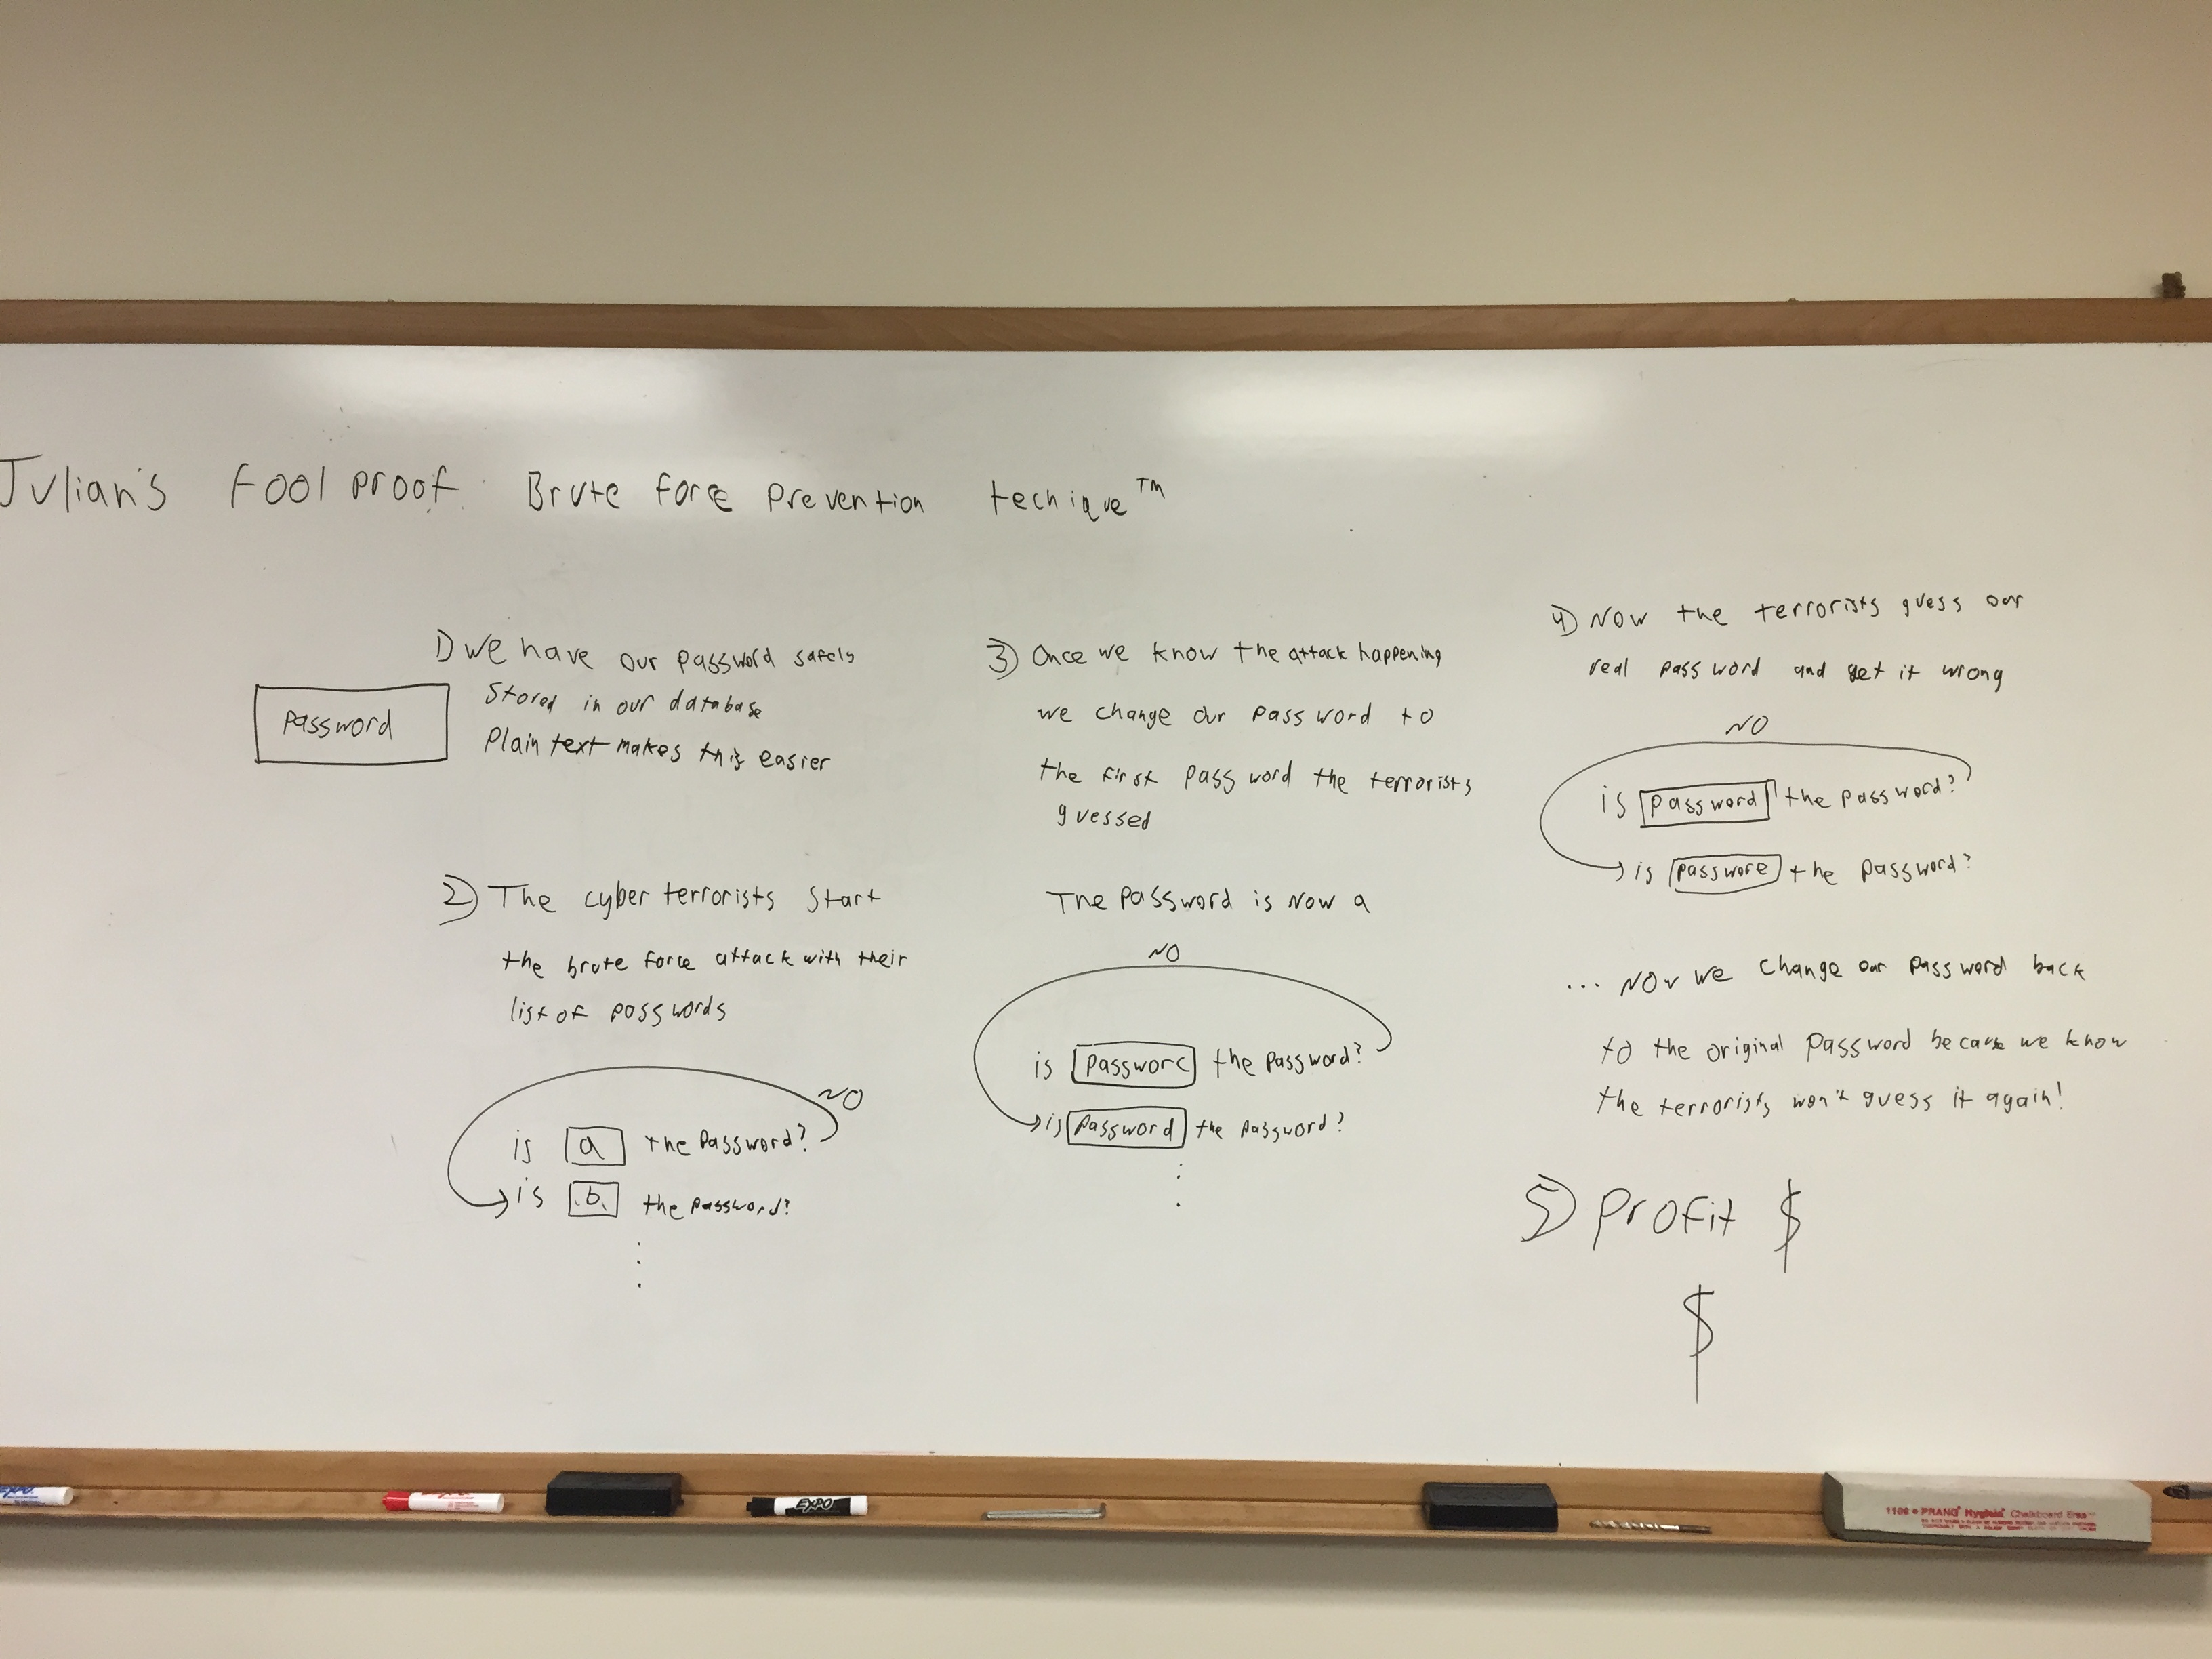 Julian's Fool proof Brute force Prevention techique™
1) we have our password safely
stored in our database
Plain text makes this easier
password
2) The cyber terrorists start
the brute force attack with their
list of passwords
NO
is a the Password?
is b the password?
3) Once we know the attack happening
we change our password to
the first password the terrorists
guessed
The password is now a
NO
is passworc the password?
is password the password?
4) Now the terrorists guess our
real password and get it wrong
NO
is password the password?
is passwore the password?
... Now we change our password back
to the original password because we know
the terrorists won't guess it again!
5) Profit $
$
EXPO
EXPO
1108 • PRANG Hygieia Chalkboard Eraser